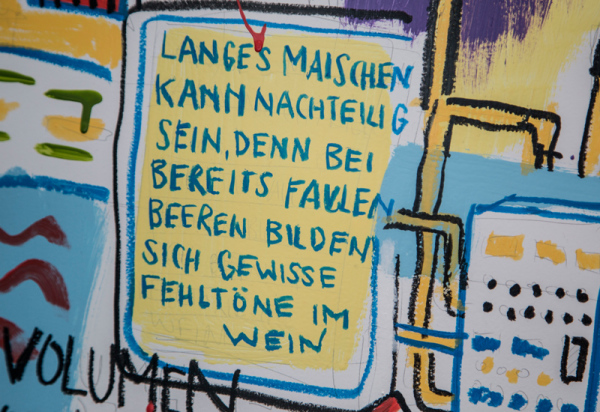 LANGES MAISCHEN
KANN NACHTEILIG
SEIN, DENN BEI
BEREITS FAULEN
BEEREN BILDEN
SICH GEWISSE
FEHLTÖNE IM
WEIN
VOLUMEN